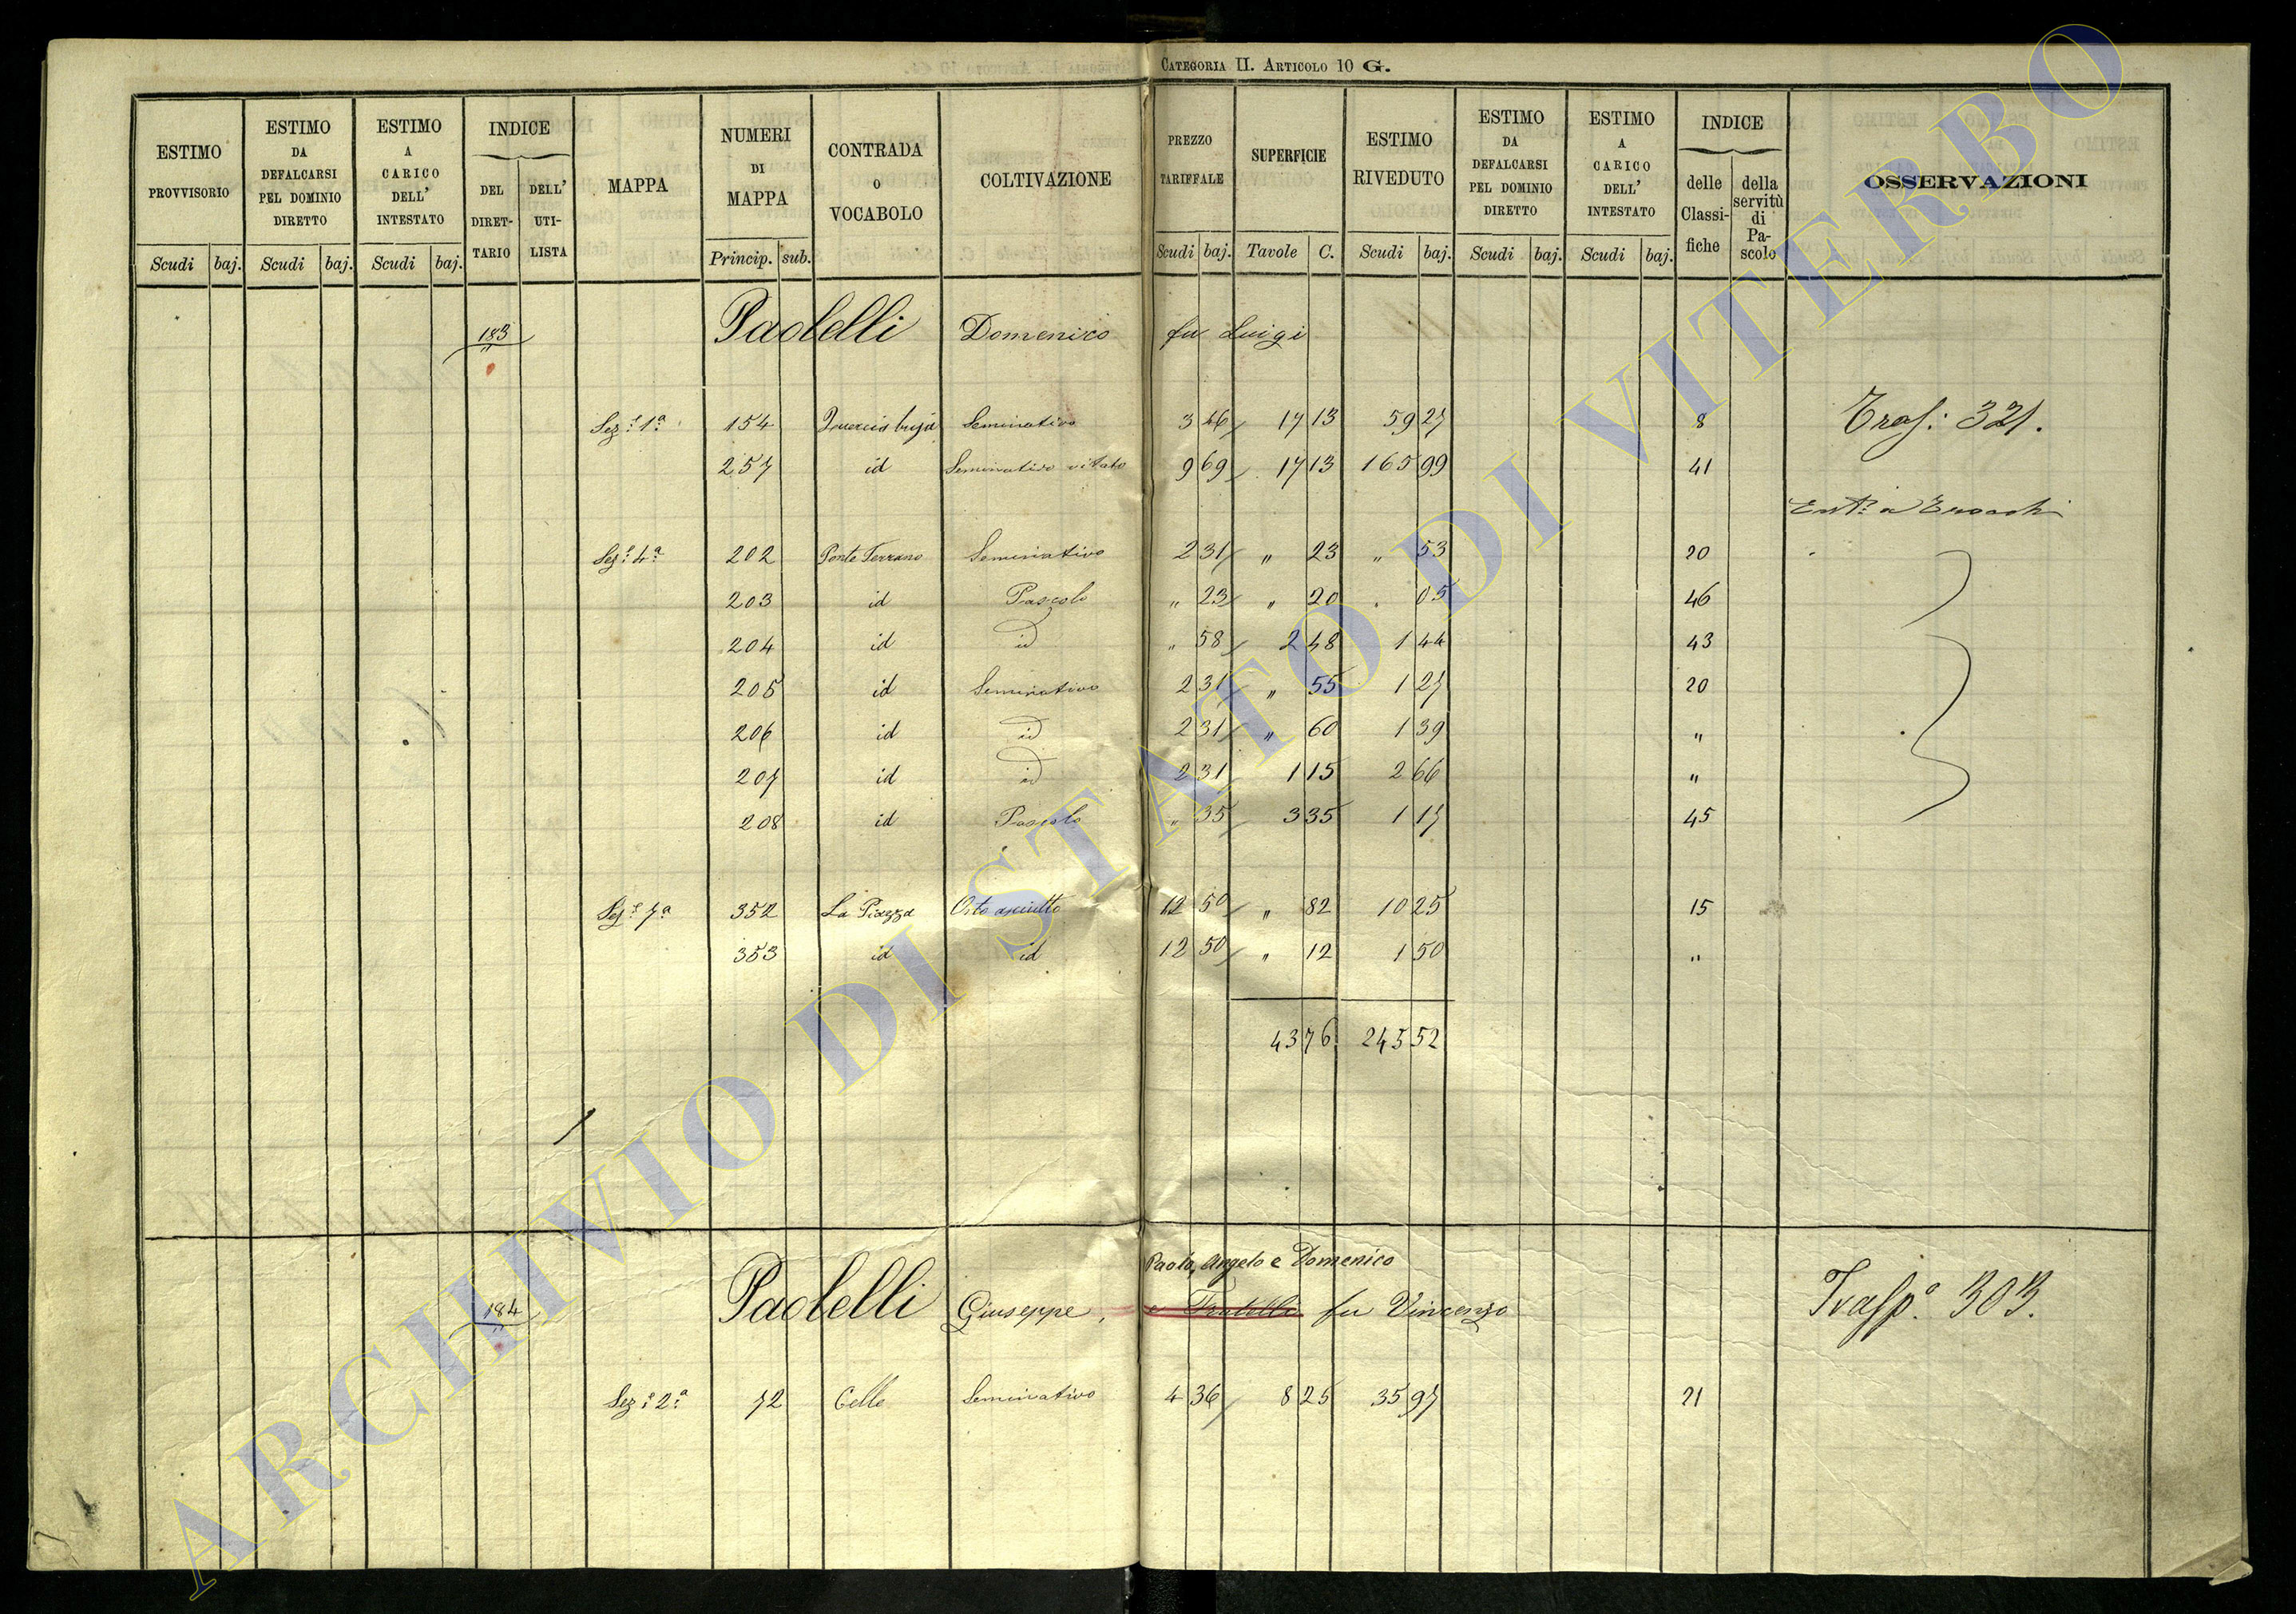 CATEGORIA II. ARTICOLO 10 G.
ESTIMO PROVVISORIO Scudi baj.
ESTIMO DA DEFALCARSI PEL DOMINIO DIRETTO Scudi baj.
ESTIMO A CARICO DELL' INTESTATO Scudi baj.
INDICE DEL DIRET-TARIO DELL' UTI-LISTA
MAPPA
NUMERI DI MAPPA Princip. sub.
CONTRADA O VOCABOLO
COLTIVAZIONE
PREZZO TARIFFALE Scudi baj.
SUPERFICIE Tavole C.
ESTIMO RIVEDUTO Scudi baj.
ESTIMO DA DEFALCARSI PEL DOMINIO DIRETTO Scudi baj.
ESTIMO A CARICO DELL' INTESTATO Scudi baj.
INDICE delle Classi-fiche della servitù di Pa-scolo
OSSERVAZIONI
183 Paolelli Domenico fu Luigi
Sez.e 1a 154 Seminativo 3 46 17 13 59 27 8 Trasp: 321.
257 id Seminativo vitato 9 69 17 13 165 99 41
Sez.e 4a 202 Ponte Terrano Seminativo 2 31 " 23 " 53 20
203 id Pascolo " 23 " 20 " 05 46
204 id id " 58 2 48 1 44 43
205 id Seminativo 2 31 " 55 1 27 20
206 id id 2 31 " 60 1 39 "
207 id id 2 31 1 15 2 66 "
208 id Pascolo " 35 3 35 1 17 45
Sez.e 7a 352 La Piazza Orto asciutto 12 50 " 82 10 25 15
353 id id 12 50 " 12 1 50 "
43 76 245 52
Paolo, Angelo e Domenico
184 Paolelli Giuseppe, e Fratelli fu Vincenzo Trasp.o 303.
Sez.e 2a 72 Celle Seminativo 4 36 8 25 35 97 21
ARCHIVIO DI STATO DI VITERBO